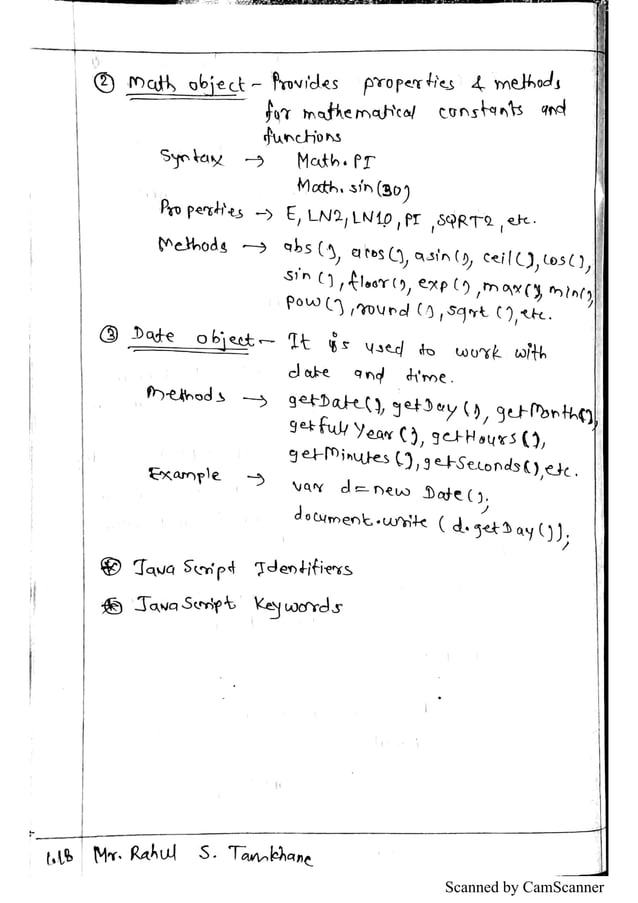 ② Math object - Provides properties & methods
for mathematical constants and
functions
Syntax → Math.PI
Math.sin(30)
Properties → E, LN2, LN10, PI, SQRT2, etc.
Methods → abs(), acos(), asin(), ceil(), cos(),
sin(), floor(), exp(), max(), min(),
pow(), round(), sqrt(), etc.
③ Date object - It is used to work with
date and time.
Methods → getDate(), getDay(), getMonth(),
getfullYear(), getHours(),
getMinutes(), getSeconds(), etc.
Example → var d = new Date();
document.write(d.getDay());
* JavaScript Identifiers
* JavaScript Keywords
1.18 Mr. Rahul S. Tamkhane
Scanned by CamScanner